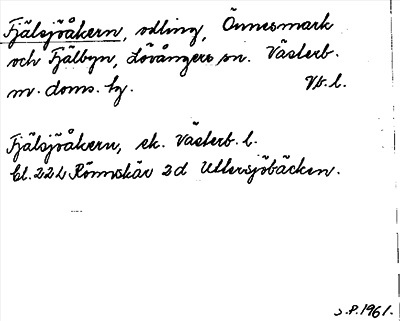 Fjälsjöåkern, odling, Önnesmark
och Fjälbyn, Lövångers sn. Västerb.
n. doms. hg. Vb. l.
Fjälsjöåkern, ek. Västerb. l.
bl. 22L Rönnskär 2d Uttersjöbäcken.
S.P. 1961.